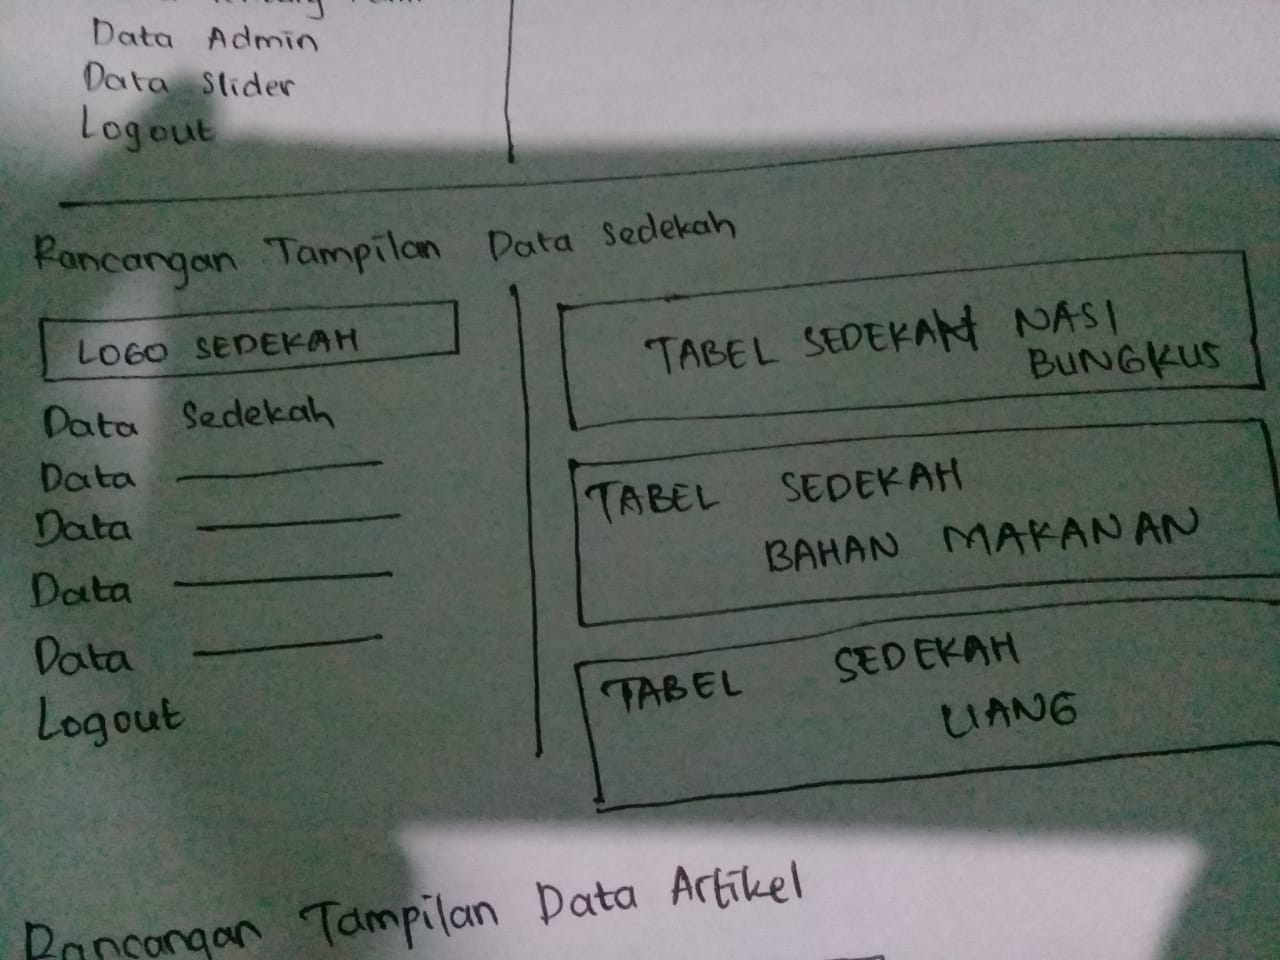 Data Admin
Data Slider
Logout
Rancangan Tampilan Data Sedekah
LOGO SEDEKAH
Data Sedekah
Data
Data
Data
Data
Logout
TABEL SEDEKAH NASI
BUNGKUS
TABEL SEDEKAH
BAHAN MAKANAN
TABEL SEDEKAH
UANG
Rancangan Tampilan Data Artikel